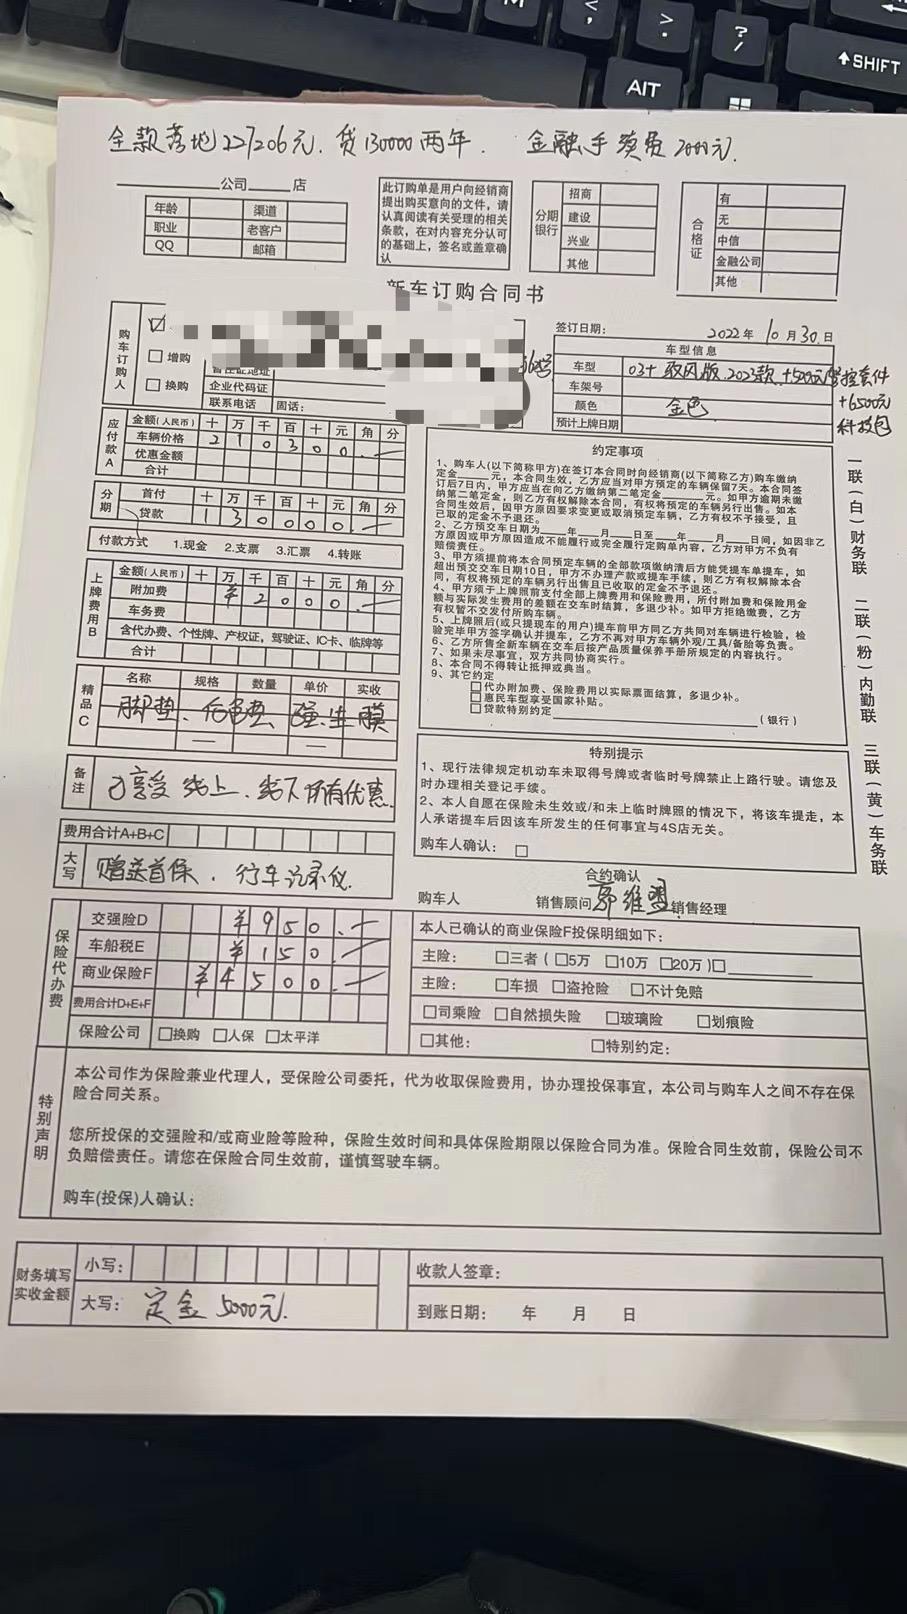 全款落地227206元. 贷130000两年. 金融手续费2000元.
公司 店
年龄 渠道
职业 老客户
QQ 邮箱
此订购单是用户向经销商
提出购买意向的文件，请
认真阅读有关受理的相关
条款，在对内容充分认可
的基础上，签名或盖章确
认
分期银行
招商
建设
兴业
其他
合格证
有
无
中信
金融公司
其他
新车订购合同书
签订日期: 2022年10月30日
购车订购人
增购
换购
企业代码证
联系电话 固话:
车型信息
车型 03+ 驭风版 2023款 +500元 套件
车架号 +6500元
颜色 金色 科技包
预计上牌日期
应付款A
金额(人民币) 十 万 千 百 十 元 角 分
车辆价格 2 1 0 3 0 0 .—
优惠金额
合计
分期
首付 十 万 千 百 十 元 角 分
贷款 1 3 0 0 0 0 .—
付款方式 1.现金 2.支票 3.汇票 4.转账
上牌费用B
金额(人民币) 十 万 千 百 十 元 角 分
附加费 ¥ 2 0 0 0 .—
车务费
含代办费、个性牌、产权证，驾驶证、IC卡、临牌等
合计
精品C
名称 规格 数量 单价 实收
脚垫、后备垫、 生膜
备注
已享受线上、线下所有优惠.
费用合计A+B+C
大写
赠送首保、行车记录仪.
约定事项
1、购车人(以下简称甲方)在签订本合同时向经销商(以下简称乙方)购车缴纳
定金____元，本合同生效，乙方应当对甲方预定的车辆保留7天。本合同签
订后7日内，甲方应当在向乙方缴纳第二笔定金____元。如甲方逾期未缴
纳第二笔定金，则乙方有权解除本合同，有权将预定的车辆另行出售。如本
合同生效后，因甲方原因要求变更或取消预定车辆，乙方有权不予接受，且
已取的定金不予退还。
2、乙方预交车日期为___年___月___日至___年___月___日间，如因非乙
方原因或甲方原因造成不能履行或完全履行定购单内容，乙方对甲方不负有
赔偿责任。
3、甲方须提前将本合同预定车辆的全部款项缴纳清后方能凭提车单提车，如
超出预交交车日期10日，甲方不办理产款或提车手续，则乙方有权解除本合
同，有权将预定的车辆另行出售且已收取的定金不予退还。
4、甲方须于上牌照前支付全部上牌费用和保险费用，所付附加费和保险用金
额与实际发生费用的差额在交车时结算，多退少补。如甲方拒绝缴费，乙方
有权暂不交发付所购车辆。
5、上牌照后(或只提现车的用户)提车前甲方同乙方共同对车辆进行检验，检
验完毕甲方签字确认并提车，乙方不再对甲方车辆外观/工具/备胎等负责。
6、乙方所售全新车辆在交车后按产品质量保养手册所规定的内容执行。
7、如果未尽事宜，双方共同协商实行。
8、本合同不得转让抵押或典当。
9、其它约定
□代办附加费、保险费用以实际票面结算，多退少补。
□惠民车型享受国家补贴。
□贷款特别约定____(银行)
特别提示
1、现行法律规定机动车未取得号牌或者临时号牌禁止上路行驶。请您及
时办理相关登记手续。
2、本人自愿在保险未生效或/和未上临时牌照的情况下，将该车提走，本
人承诺提车后因该车所发生的任何事宜与4S店无关。
购车人确认: □
合约确认
购车人 销售顾问 维盟 销售经理
一联(白)财务联 二联(粉)内勤联 三联(黄)车务联
保险代办费
交强险D ¥ 9 5 0 .—
车船税E ¥ 1 5 0 .—
商业保险F ¥ 4 5 0 0 .—
费用合计D+E+F
保险公司 □换购 □人保 □太平洋
本人已确认的商业保险F投保明细如下:
主险: □三者(□5万 □10万 □20万)□
主险: □车损 □盗抢险 □不计免赔
□司乘险 □自然损失险 □玻璃险 □划痕险
□其他: □特别约定:
特别声明
本公司作为保险兼业代理人，受保险公司委托，代为收取保险费用，协办理投保事宜，本公司与购车人之间不存在保
险合同关系。
您所投保的交强险和/或商业险等险种，保险生效时间和具体保险期限以保险合同为准。保险合同生效前，保险公司不
负赔偿责任。请您在保险合同生效前，谨慎驾驶车辆。
购车(投保)人确认:
财务填写实收金额
小写:
大写: 定金5000元.
收款人签章:
到账日期: 年 月 日
AIT
SHIFT